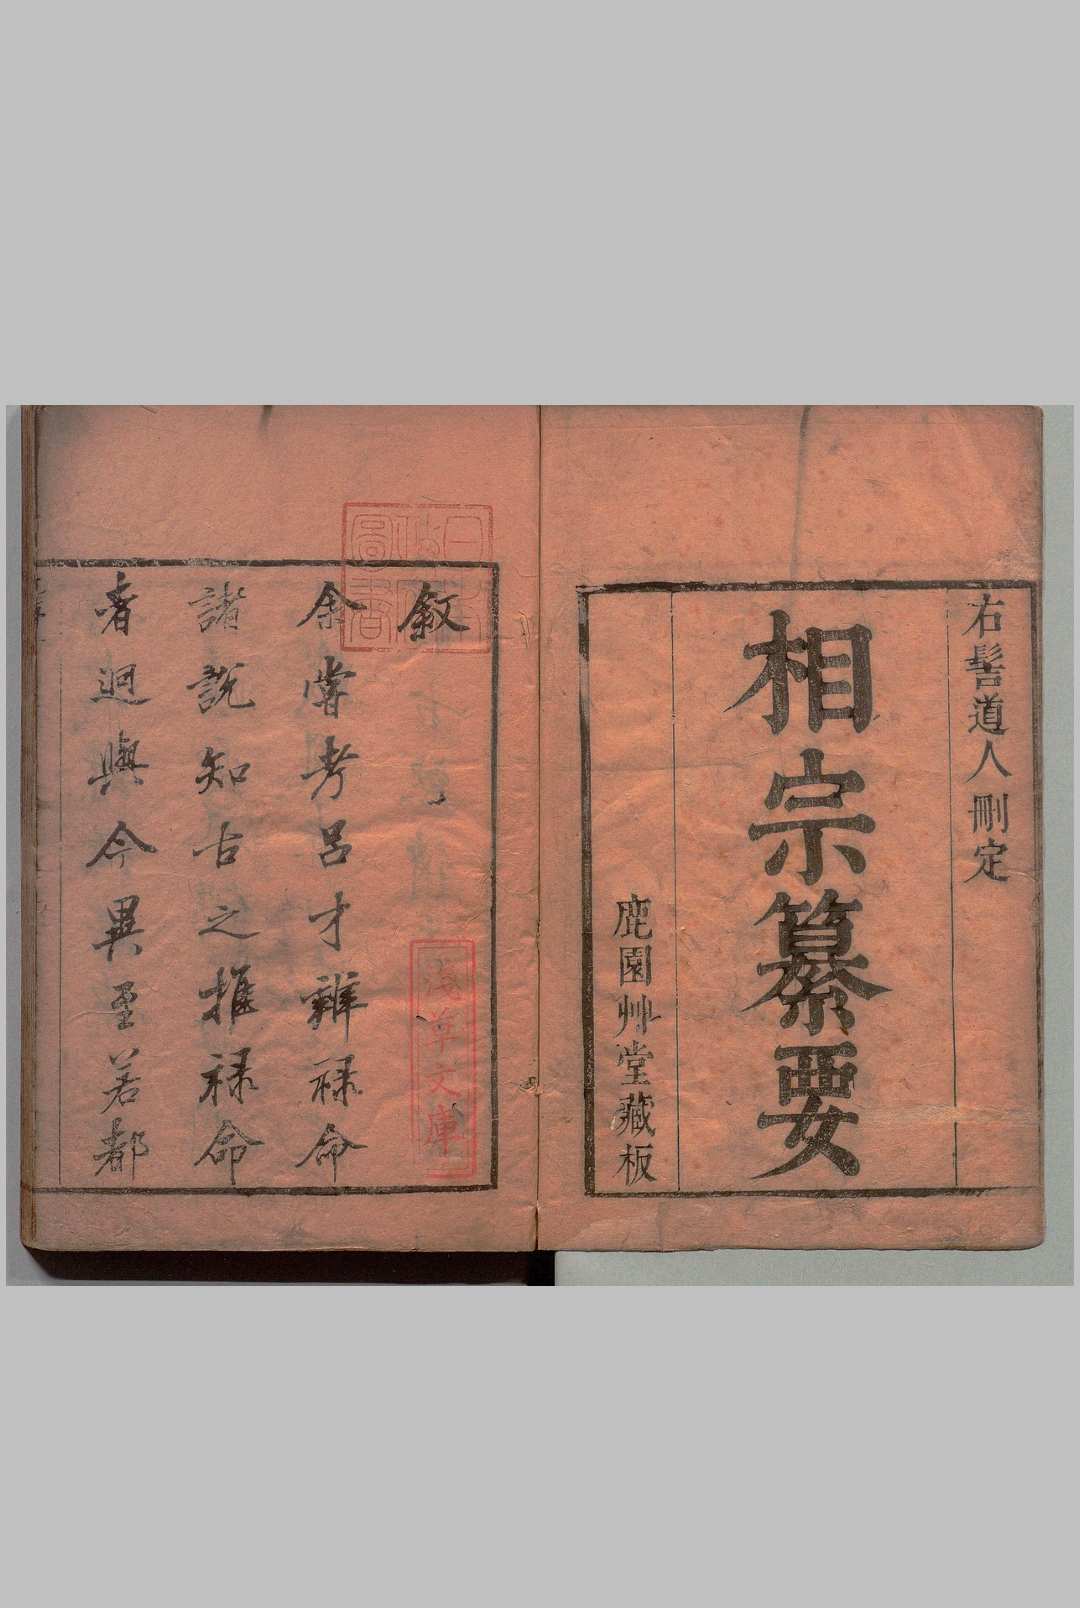 右髻道人刪定
相宗纂要
鹿園艸堂藏板
敘
余嘗考呂才辨祿命
諸說知古之推祿命
者迥與今異至若都
淺草文庫
圖書